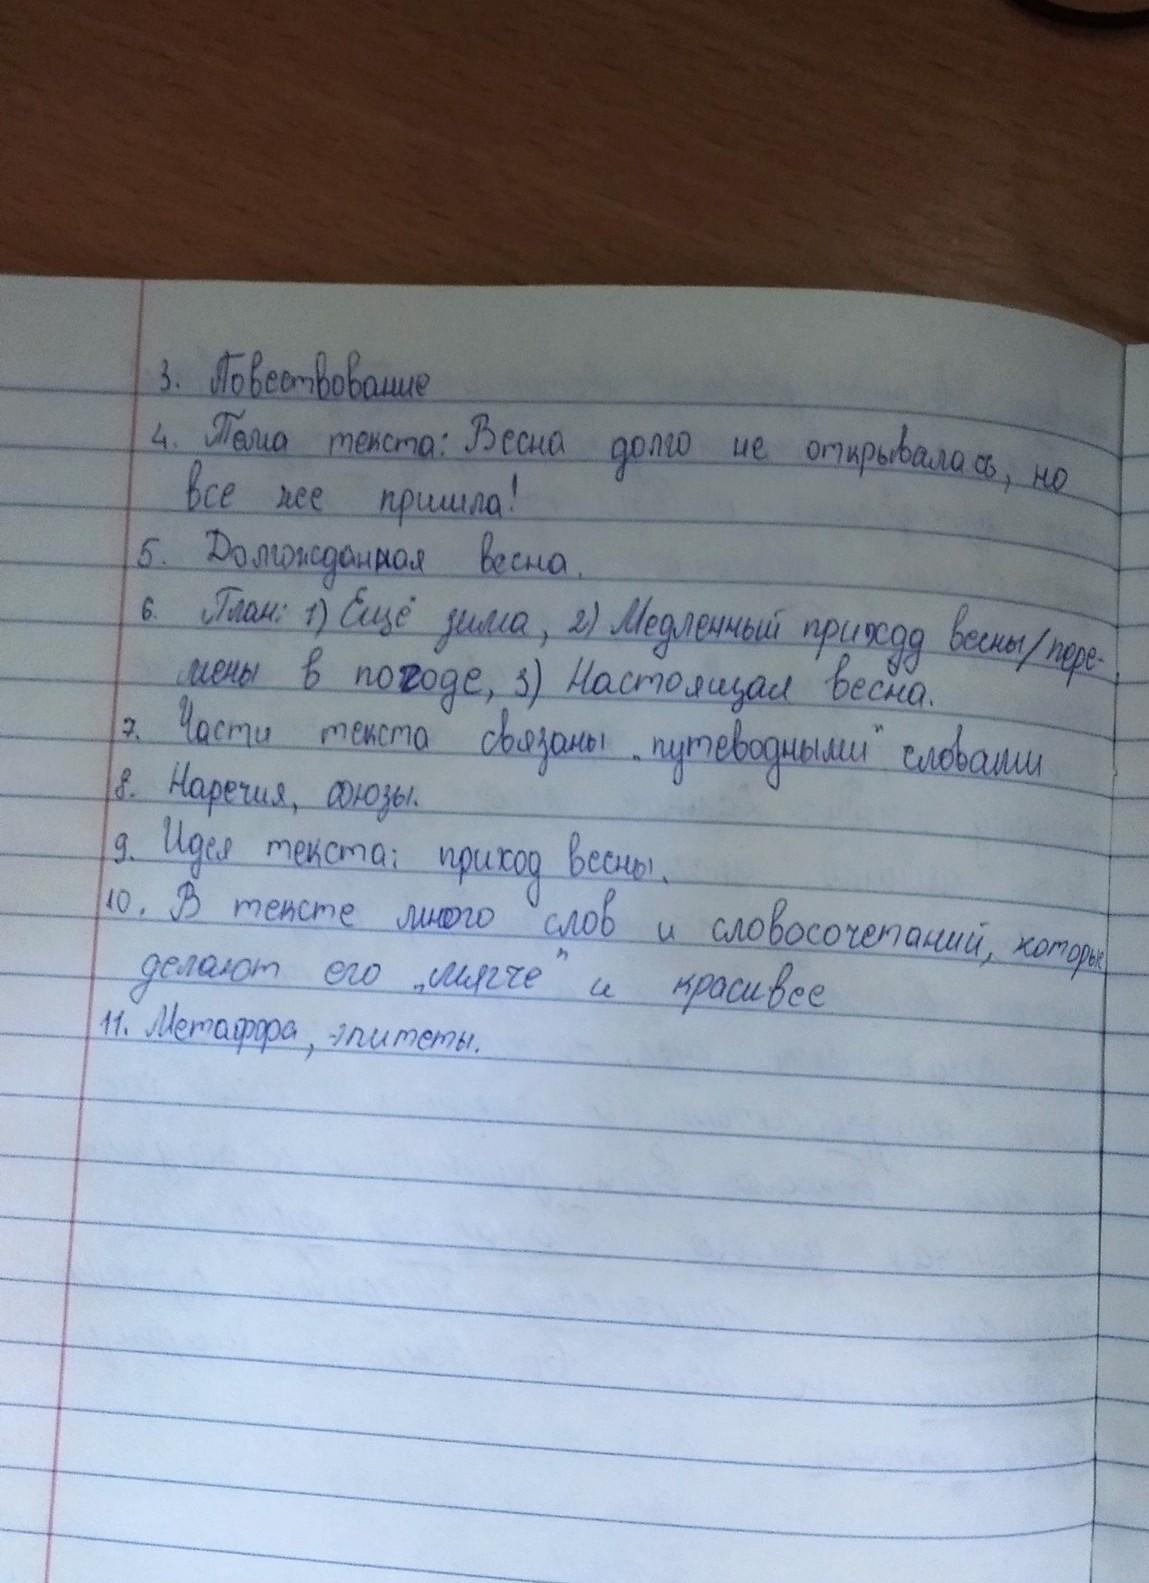 3. Повествование
4. Тема текста: Весна долго не открывалась, но
все же пришла!
5. Долгожданная весна.
6. План: 1) Ещё зима, 2) Медленный приход весны/пере-
мены в погоде, 3) Настоящая весна.
7. Части текста связаны „путеводными" словами
8. Наречия, союзы.
9. Идея текста: приход весны.
10. В тексте много слов и словосочетаний, которые
делают его „мягче" и красивее
11. Метафора, эпитеты.